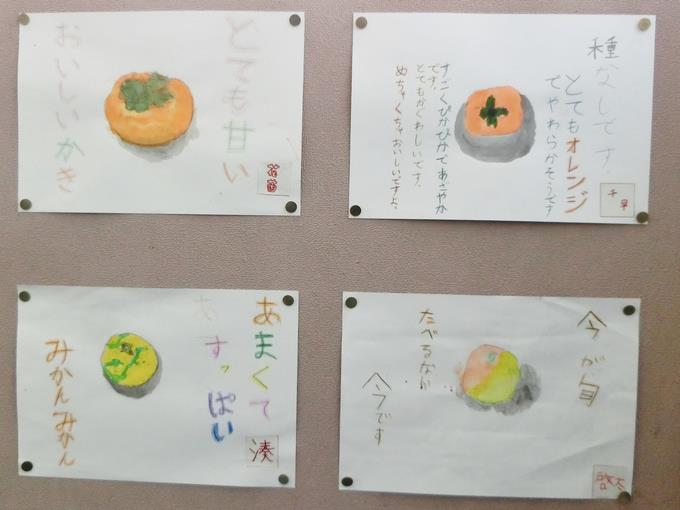 とても甘い
おいしいかき
種なしです。
とてもオレンジ
でやわらかそうです
すごくぴかぴかであざやか
です。
とてもかぐわしいです。
めちゃくちゃおいしいですよ。
千早
あまくて
すっぱい
みかんみかん
湊
今が旬
たべるなら
今です
啓太